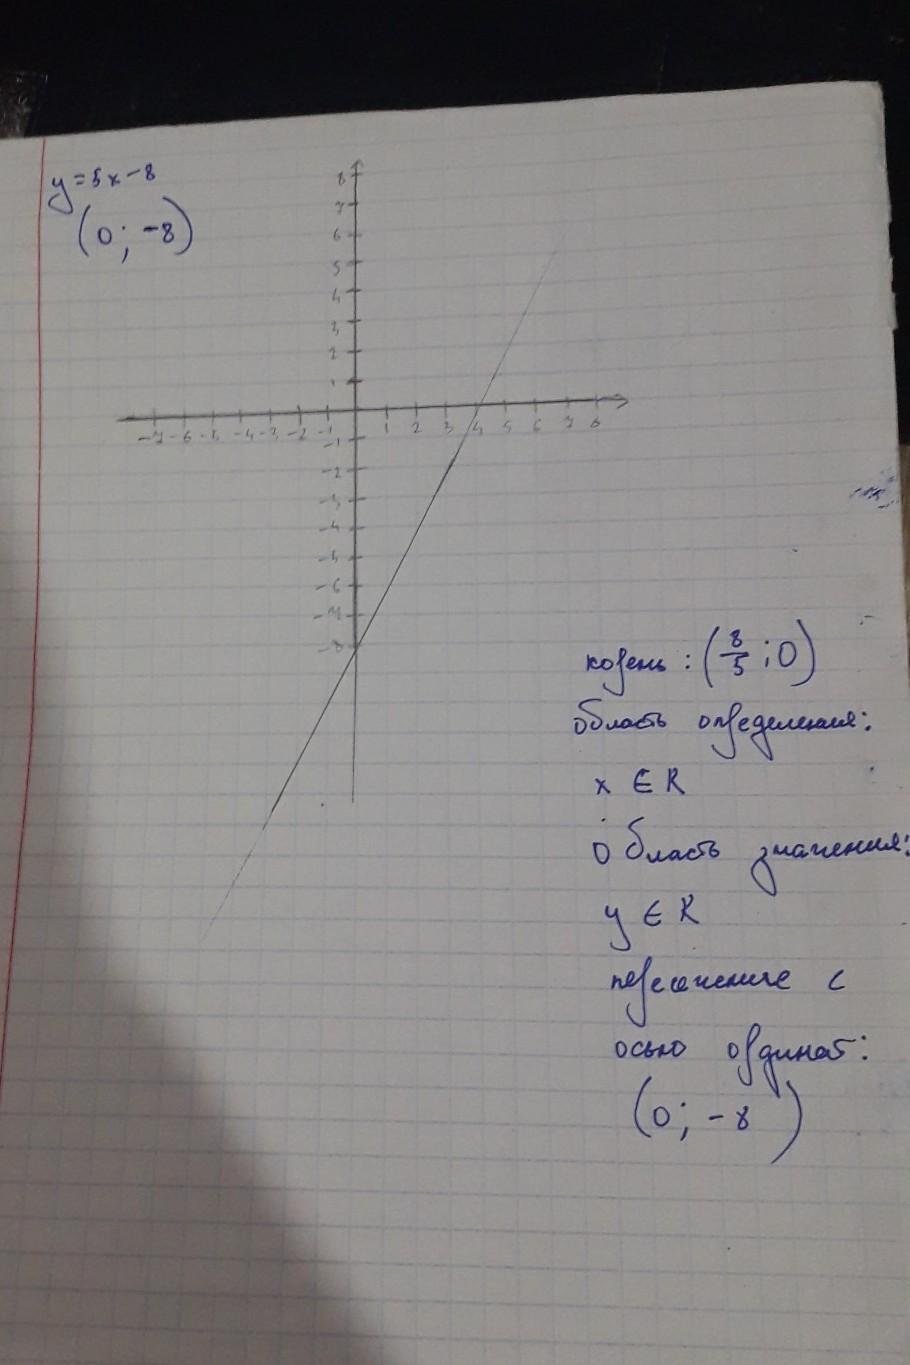 y = 5x - 8
(0; -8)
8
7
6
5
4
3
2
1
-7 -6 -5 -4 -3 -2 -1 1 2 3 4 5 6 7 8
-1
-2
-3
-4
-5
-6
-7
-8
корень: (8/5; 0)
область определения:
x ∈ R
область значения:
y ∈ R
пересечение с
осью ординат:
(0; -8)